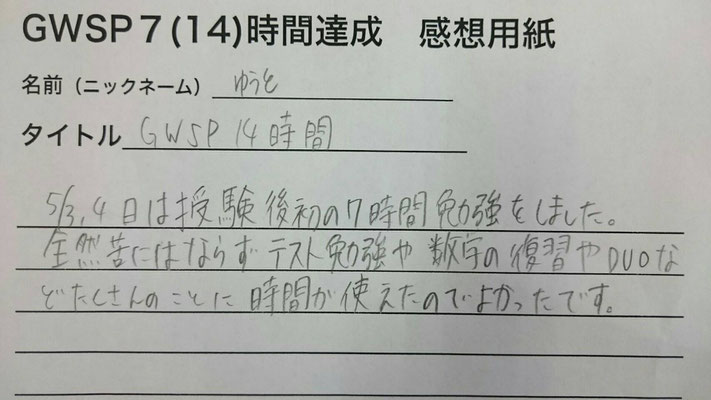 GWSP7(14)時間達成　感想用紙
名前（ニックネーム） ゆうと
タイトル GWSP 14時間
5/3,4日は授験後初の7時間勉強をしました。
全然苦にはならずテスト勉強や数学の復習やDUOな
どたくさんのことに時間が使えたのでよかったです。